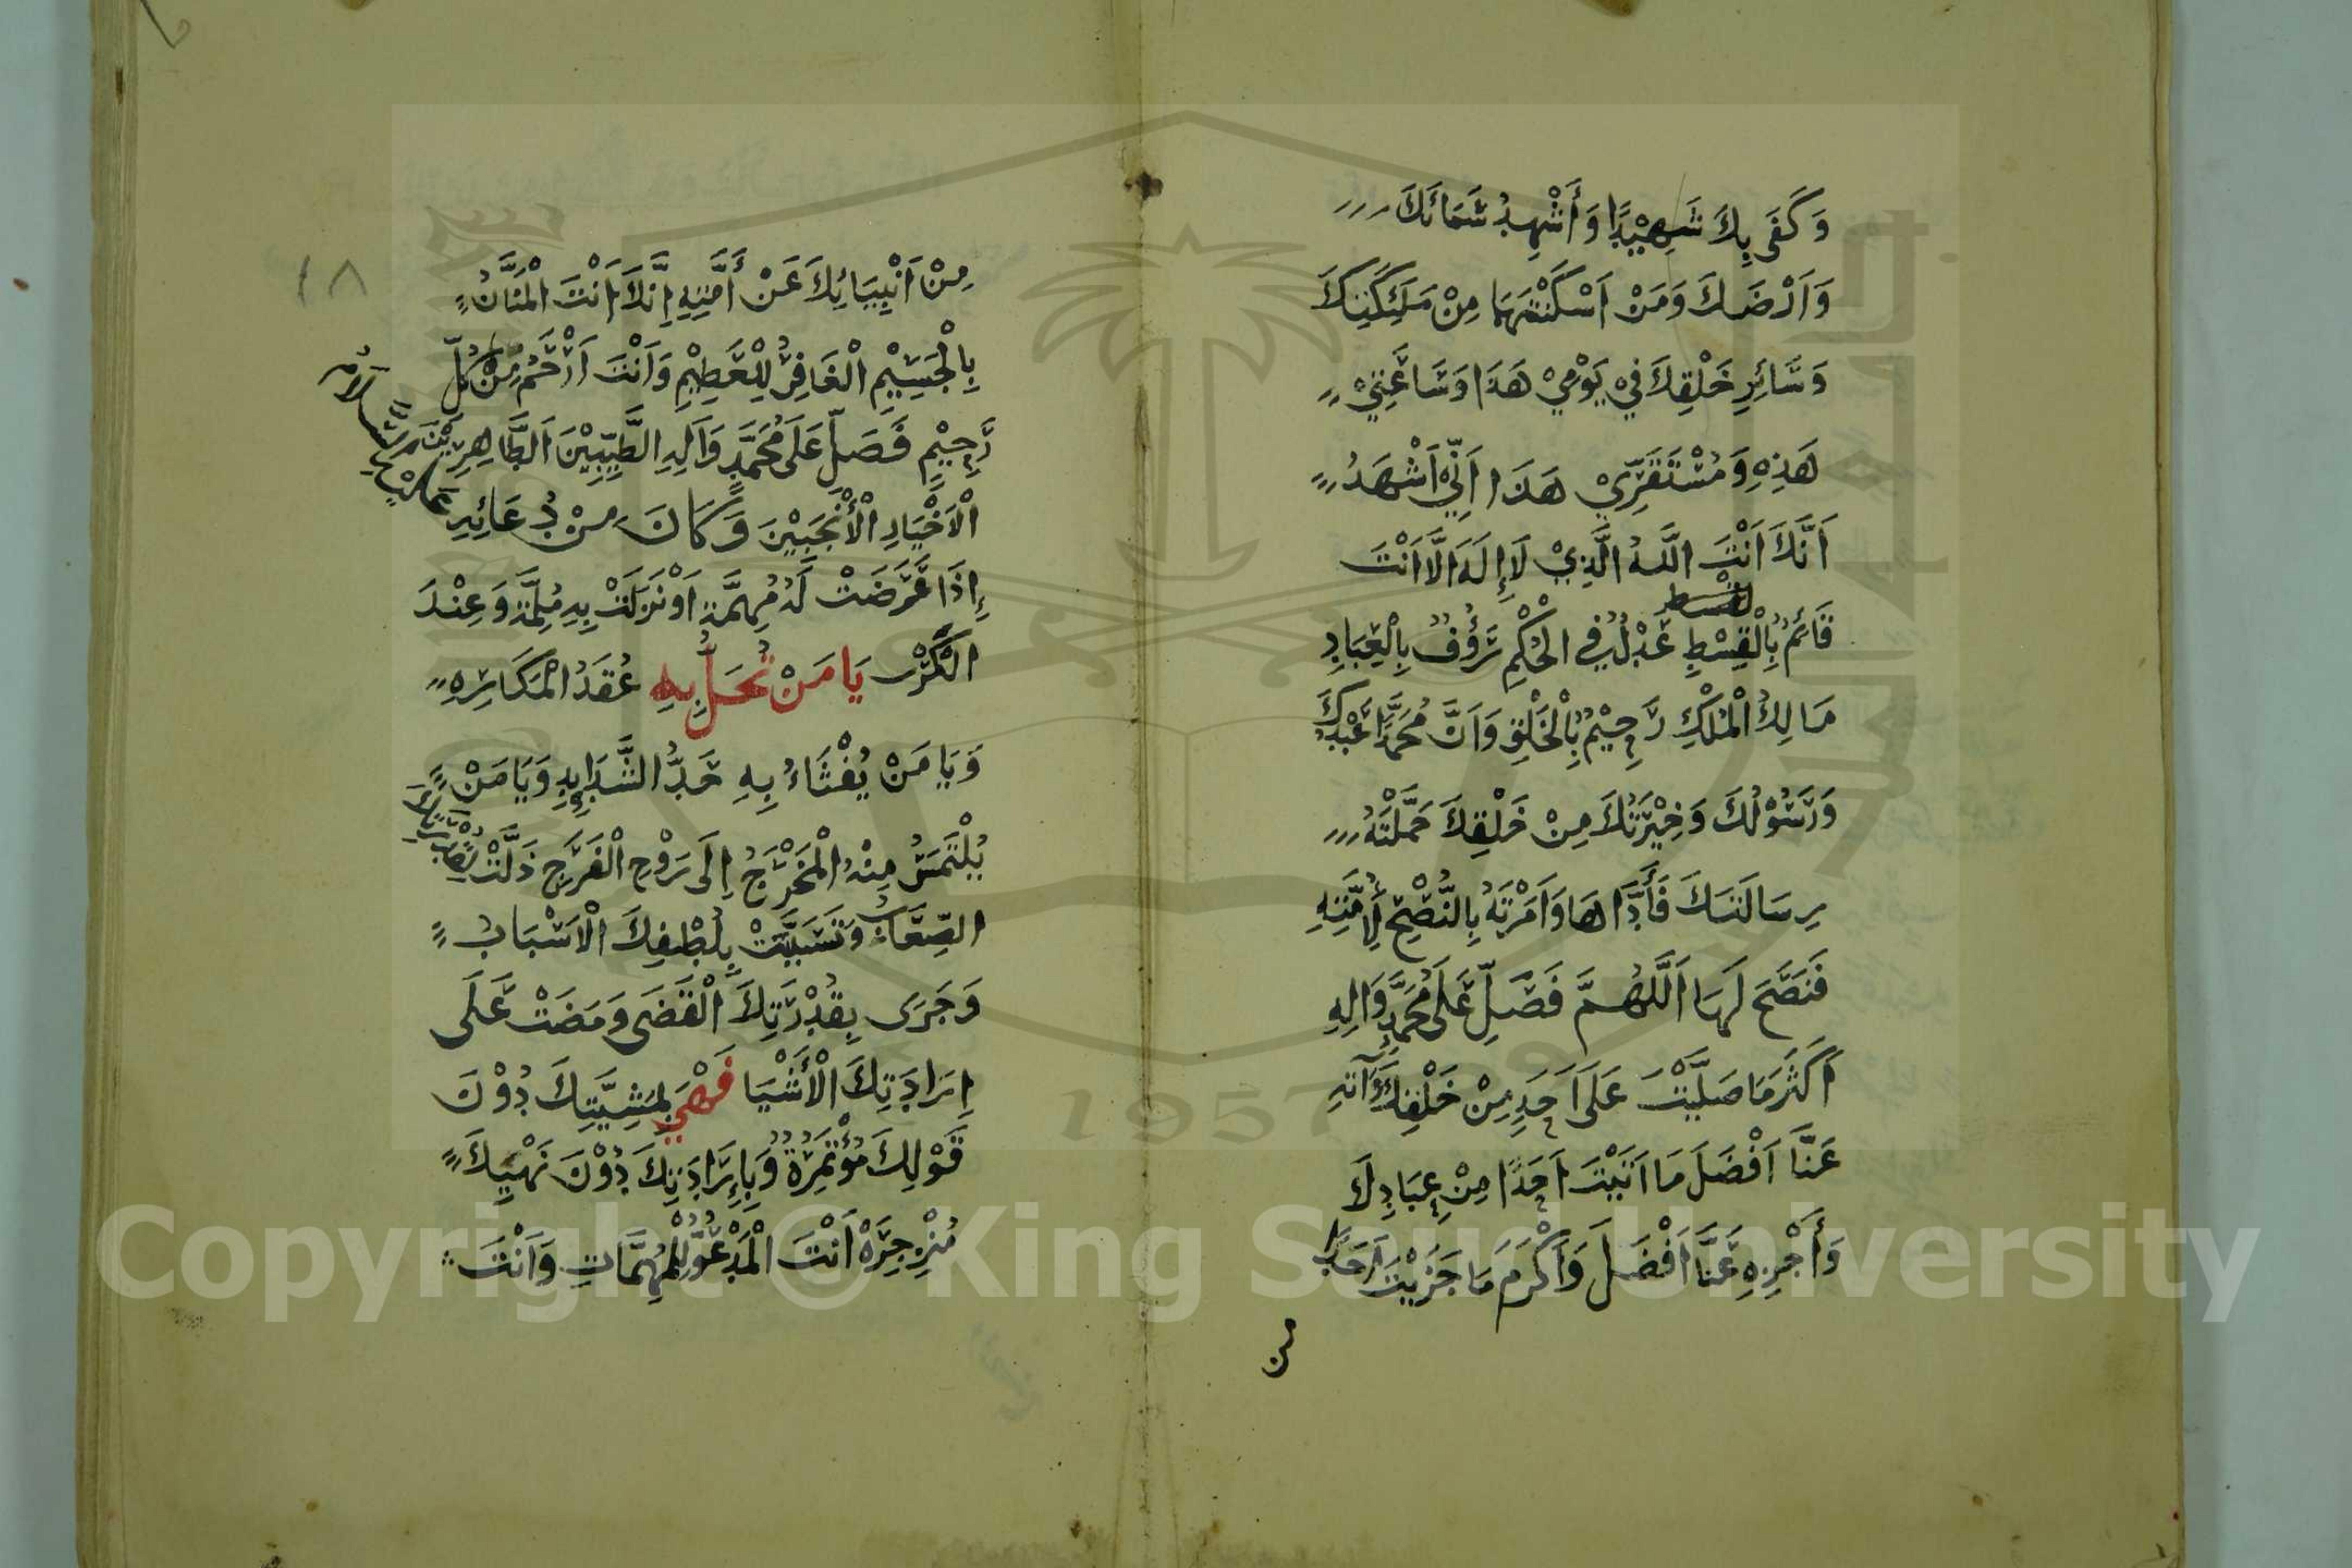 وَكَفَى بِكَ شَهِيْدًا وَأُشْهِدُ سَمَائَكَ
وَاَرْضَكَ وَمَنْ اَسْكَنْتَهَمَا مِنْ مَلَئِكَتِكَ
وَسَائِرِ خَلْقِكَ فِيْ يَوْمِيْ هَذَا وَسَاعَتِيْ
هَذِهِ وَمُسْتَقَرِّيْ هَذَا اَنِّيْ اَشْهَدُ
اَنَّكَ اَنْتَ اللَّهُ الَّذِيْ لَا إِلَهَ اِلَّا اَنْتَ
قَائِمٌ بِالْقِسْطِ عَدْلٌ فِي الْحُكْمِ رَؤُفٌ بِالْعِبَادِ
مَالِكُ الْمُلْكِ رَحِيْمٌ بِالْخَلْقِ وَاَنَّ مُحَمَّدًا عَبْدُكَ
وَرَسُوْلُكَ وَخِيْرَتُكَ مِنْ خَلْقِكَ حَمَّلْتَهُ
رِسَالَتَكَ فَأَدَّاهَا وَاَمَرْتَهُ بِالنُّصْحِ لِأُمَّتِهِ
فَنَصَحَ لَهَا اَللَّهُمَّ فَصَلِّ عَلَى مُحَمَّدٍ وَالِهِ
اَكْثَرَ مَا صَلَّيْتَ عَلَى اَحَدٍ مِنْ خَلْقِكَ وَآتِهِ
عَنَّا اَفْضَلَ مَا اَتَيْتَ اَحَدًا مِنْ عِبَادِكَ
وَأَجْزِهِ عَنَّا اَفْضَلَ وَاَكْرَمَ مَا جَزَيْتَ اَحَدًا
من
١٨
مِنْ اَنْبِيَائِكَ عَنْ أُمَّتِهِ اِنَّكَ اَنْتَ الْمَنَّانُ
بِالْجَسِيْمِ الْغَافِرُ لِلْعَظِيْمِ وَاَنْتَ اَرْحَمُ مِنْ كُلِّ
رَحِيْمٍ فَصَلِّ عَلَى مُحَمَّدٍ وَآلِهِ الطَّيِّبِيْنَ اَلطَّاهِرِيْنَ
الْاَخْيَارِ الْأَنْجَبِيْنَ وَكَانَ مِنْ دُعَائِهِ عَلَيْهِ السَّلَامُ
إِذَا عَرَضَتْ لَهُ مُهِمَّة اَوْ نَزَلَتْ بِهِ مُلِمَّة وَعِنْدَ
الْكَرْبِ يَا مَنْ تُحَلُّ بِهِ عُقَدُ الْمَكَارِهِ
وَيَا مَنْ يُفْثَاءُ بِهِ حَدُّ الشَّدَايِدِ وَيَا مَنْ
يُلْتَمَسُ مِنْهُ الْمَخْرَجُ اِلَى رَوْحِ الْفَرَجِ ذَلَّتْ لِقُدْرَتِكَ
الصِّعَابُ وَتَسَبَّبَتْ بِلُطْفِكَ الْاَسْبَابُ
وَجَرَى بِقُدْرَتِكَ الْقَضَى وَمَضَتْ عَلَى
اِرَادَتِكَ الْأَشْيَا فَهْيَ بِمَشِيَّتِكَ دُوْنَ
قَوْلِكَ مُؤْتَمِرَةٌ وَبِإِرَادَتِكَ دُوْنَ نَهْيِكَ
مُنْزَجِرَةْ اَنْتَ الْمَدْعُوُّ لِلْمُهِمَّاتِ وَاَنْتَ
1957
Copyright © King Saud University